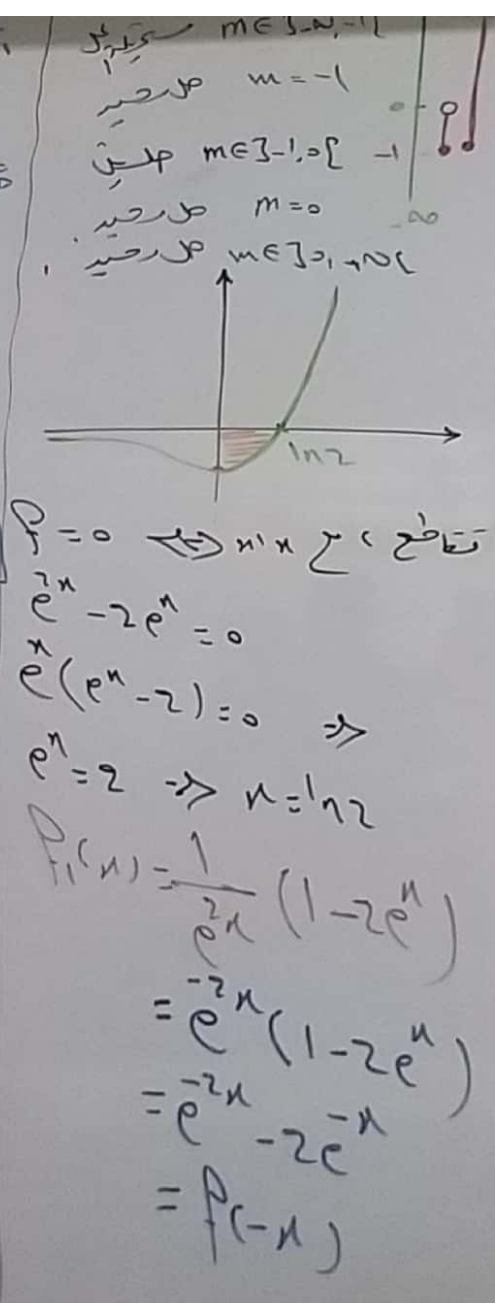 m = -1 حل وحيد
m ∈ ]-1, 0[ حلين
m = 0 حل وحيد
m ∈ ]0, +∞[ حل وحيد
0
-1
-∞
ln 2
f = 0 ⇔ x'x تقاطع مع
e^{2x} - 2e^x = 0
e^x (e^x - 2) = 0 ⇒
e^x = 2 ⇒ x = ln 2
f_1(x) = \frac{1}{e^{2x}} (1 - 2e^x)
= e^{-2x} (1 - 2e^x)
= e^{-2x} - 2e^{-x}
= f(-x)